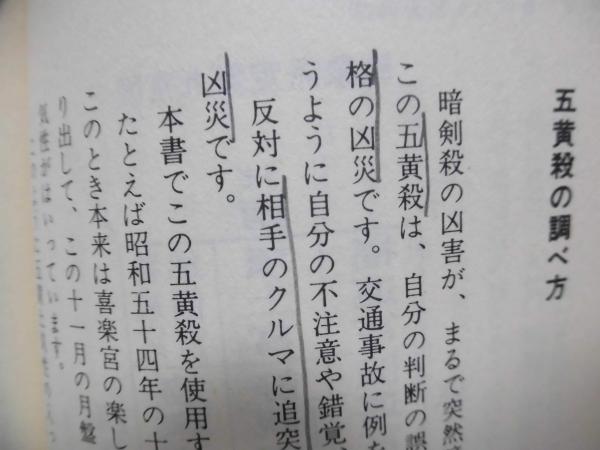 五黄殺の調べ方
暗剣殺の凶害が、まるで突然
この五黄殺は、自分の判断の誤
格の凶災です。交通事故に例を
うように自分の不注意や錯覚、
反対に相手のクルマに追突
凶災です。
本書でこの五黄殺を使用す
たとえば昭和五十四年の十
このとき本来は喜楽宮の楽し
り出して、この十一月の月盤
気性がはいっています。